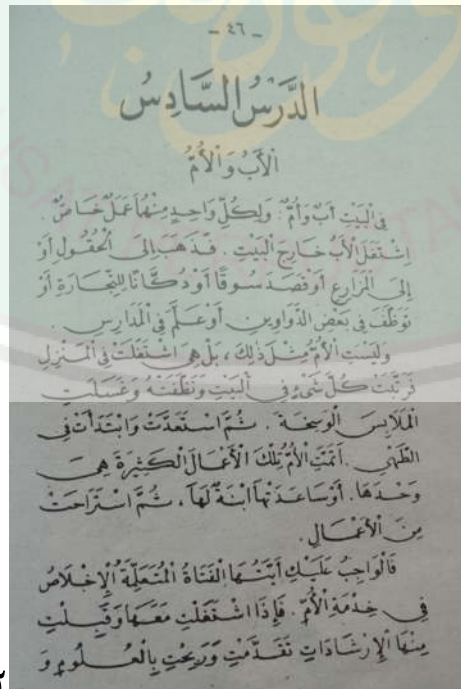 - ٤٦ -
الدَّرْسُ السَّادِسُ
الْأَبُ وَالْأُمُّ
فِي الْبَيْتِ أَبٌ وَأُمٌّ: وَلِكُلِّ وَاحِدٍ مِنْهُمَا عَمَلٌ خَاصٌّ.
اِشْتَغَلَ الْأَبُ خَارِجَ الْبَيْتِ. فَذَهَبَ إِلَى الْحُقُولِ أَوْ
إِلَى الْمَزَارِعِ أَوْ قَصَدَ سُوقًا أَوْ دُكَّانًا لِلتِّجَارَةِ أَوْ
تَوَظَّفَ فِي بَعْضِ الدَّوَاوِينِ أَوْ عَلَّمَ فِي الْمَدَارِسِ.
وَلَيْسَتِ الْأُمُّ مِثْلَ ذٰلِكَ، بَلْ هِيَ اشْتَغَلَتْ فِي الْمَنْزِلِ
فَرَتَّبَتْ كُلَّ شَيْءٍ فِي الْبَيْتِ وَنَظَّفَتْهُ وَغَسَلَتِ
الْمَلَابِسَ الْوَسِخَةَ. ثُمَّ اسْتَعَدَّتْ وَابْتَدَأَتْ فِي
الطَّهْيِ. أَتَمَّتِ الْأُمُّ تِلْكَ الْأَعْمَالَ الْكَثِيرَةَ هِيَ
وَحْدَهَا. أَوْ سَاعَدَتْهَا ابْنَةٌ لَهَا، ثُمَّ اسْتَرَاحَتْ
مِنَ الْأَعْمَالِ.
فَالْوَاجِبُ عَلَيْكِ أَيَّتُهَا الْفَتَاةُ الْمُتَعَلِّمَةُ الْإِخْلَاصُ
فِي خِدْمَةِ الْأُمِّ. فَإِذَا اشْتَغَلْتِ مَعَهَا وَقَبِلْتِ
مِنْهَا الْإِرْشَادَاتِ تَقَدَّمْتِ وَرَبِحْتِ بِالْعُلُومِ وَ